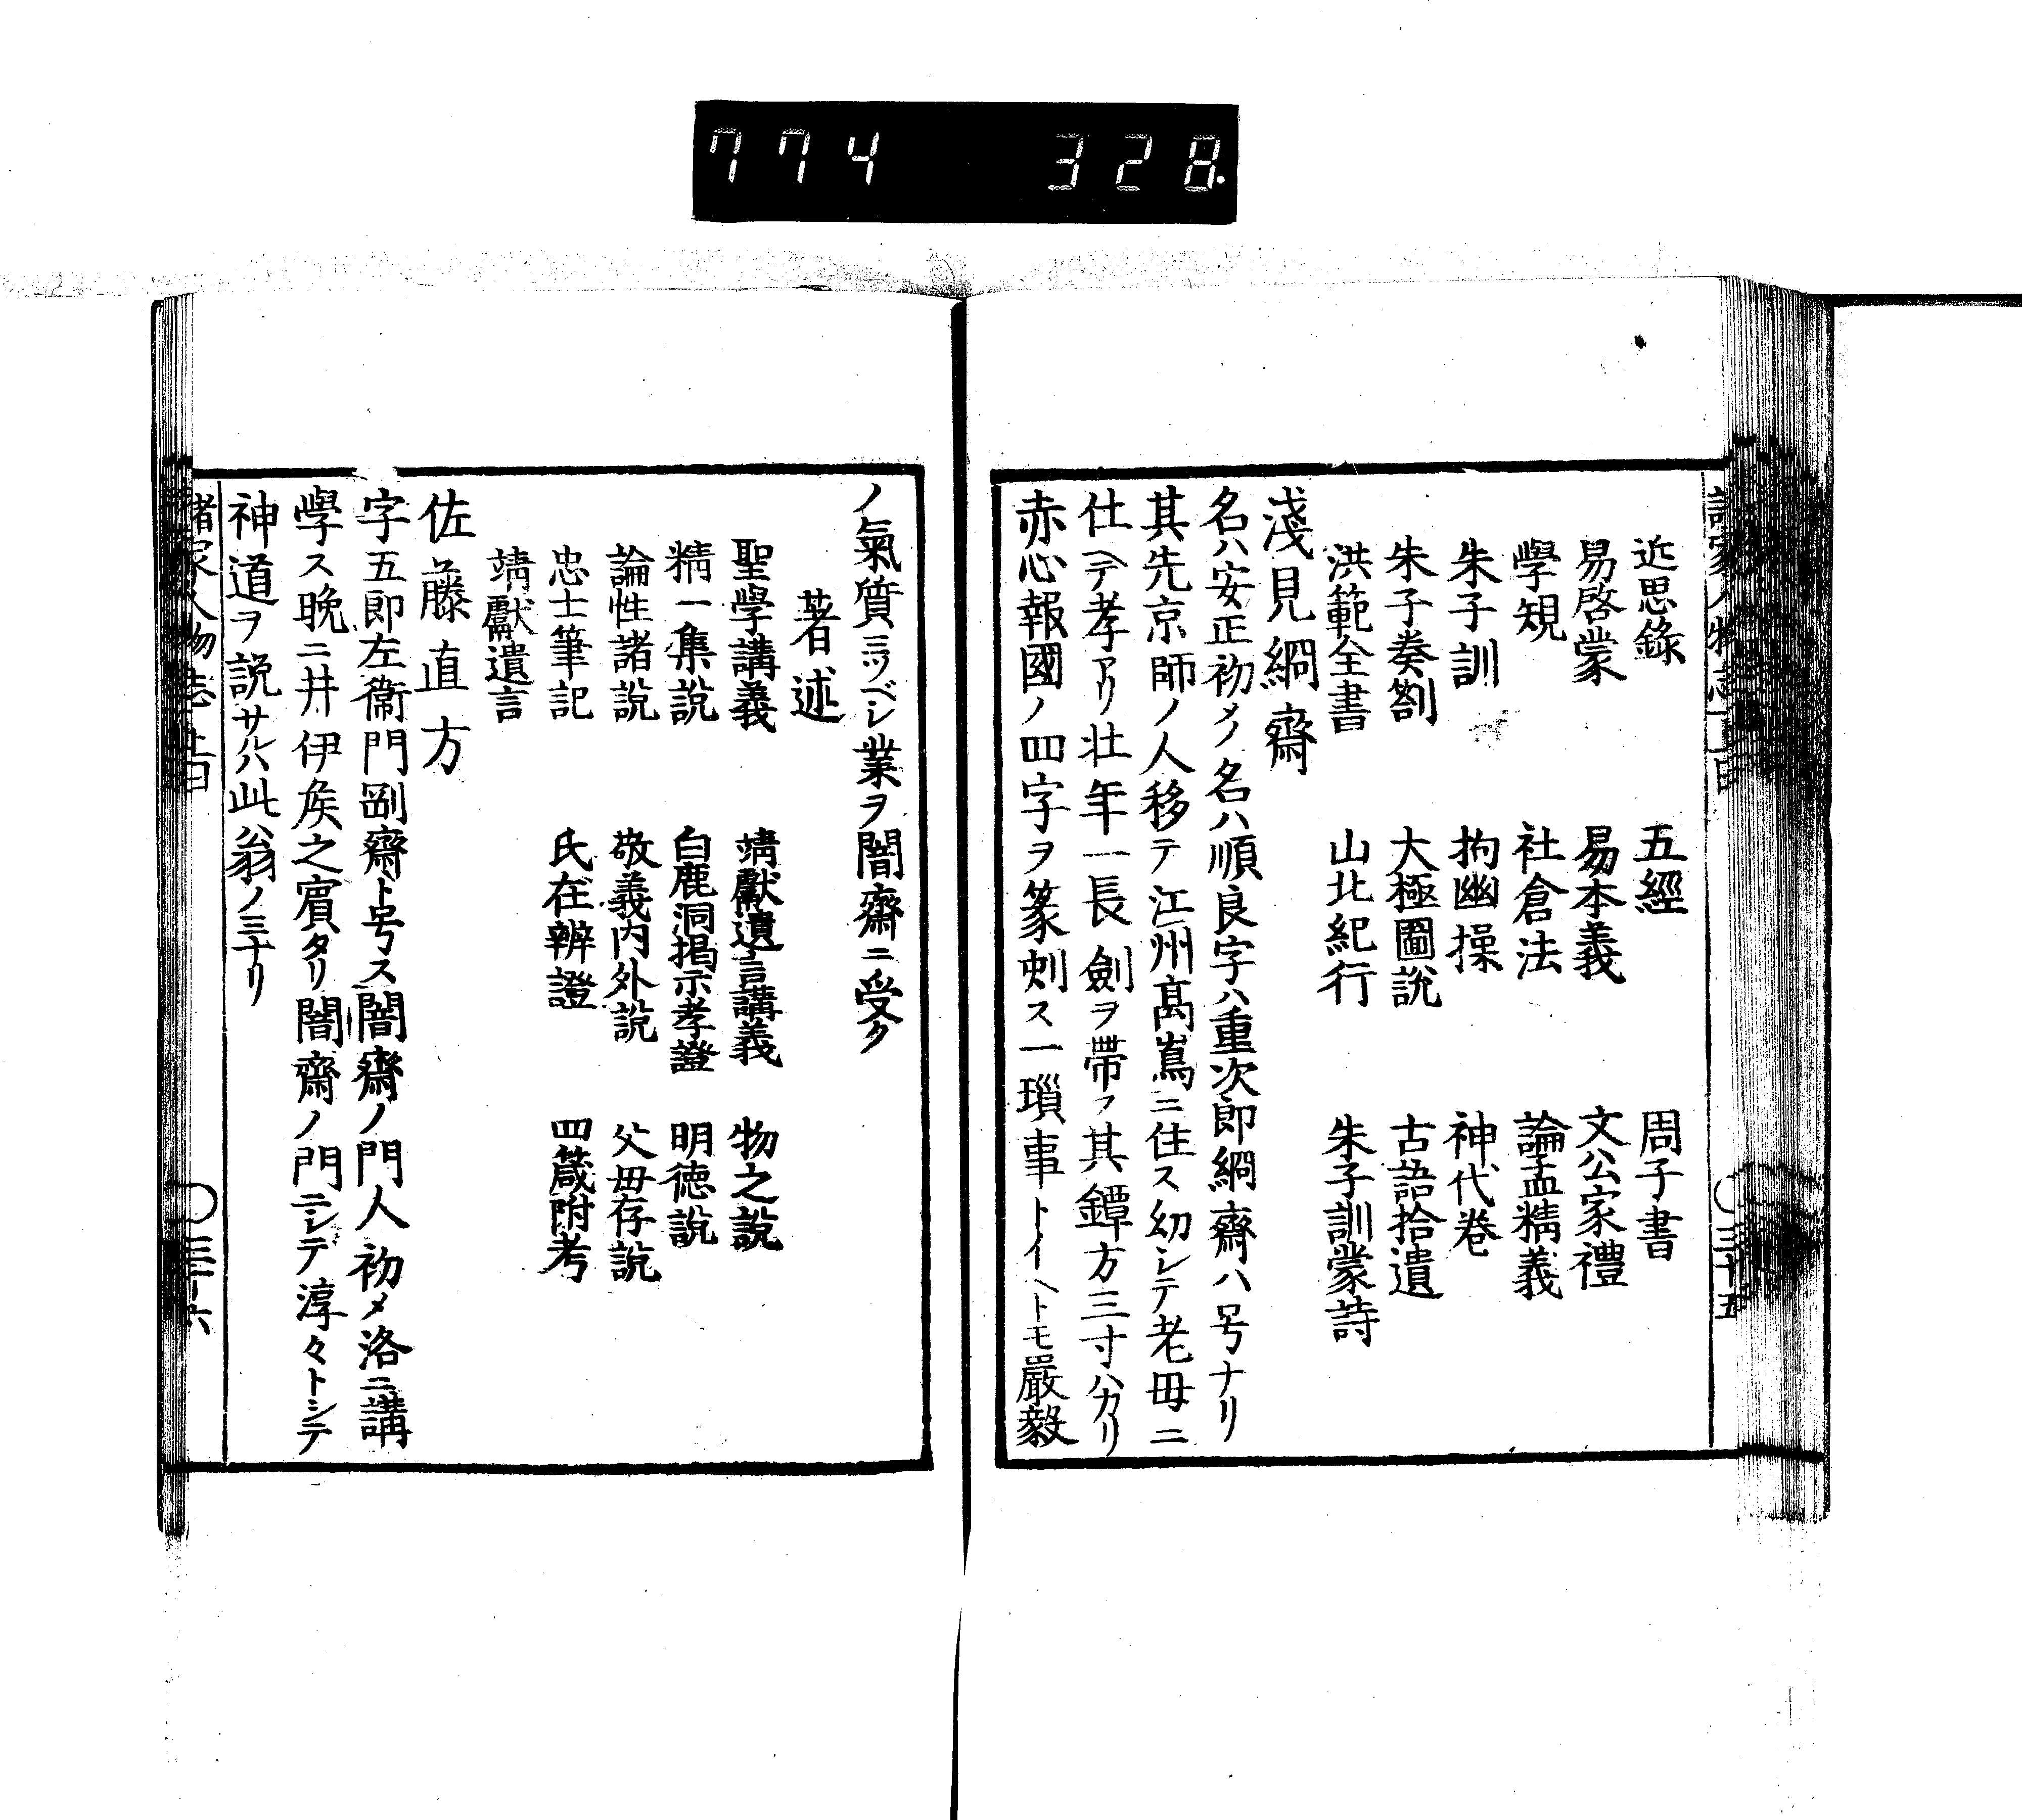 774 328
諸家人物志 上
三十五
近思錄 五經 周子書
易啓蒙 易本義 文公家禮
學規 社倉法 論孟精義
朱子訓 拘幽操 神代卷
朱子奏劄 大極圖說 古語拾遺
洪範全書 山北紀行 朱子訓蒙詩
淺見絅齋
名ハ安正初メノ名ハ順良字ハ重次郎絅齋ハ号ナリ
其先京師ノ人移テ江州髙嶌ニ住ス幼シテ老母ニ
仕ヘテ孝アリ壮年一長劍ヲ帶フ其鐔方三寸ハカリ
赤心報國ノ四字ヲ篆刺ス一瑣事トイヘトモ嚴毅
ノ氣質ミツベシ業ヲ闇齋ニ受ク
著述
聖學講義 靖獻遺言講義 物之說
精一集說 白鹿洞掲示孝證 明徳說
論性諸說 敬義内外說 父母存說
忠士筆記 氏在辨證 四箴附考
靖獻遺言
佐藤直方
字五郎左衞門剛齋ト号ス闇齋ノ門人初メ洛ニ講
學ス晩ニ井伊矦之賓タリ闇齋ノ門ニシテ淳々トシテ
神道ヲ説サルハ此翁ノミナリ
諸家人物志 上
三十六